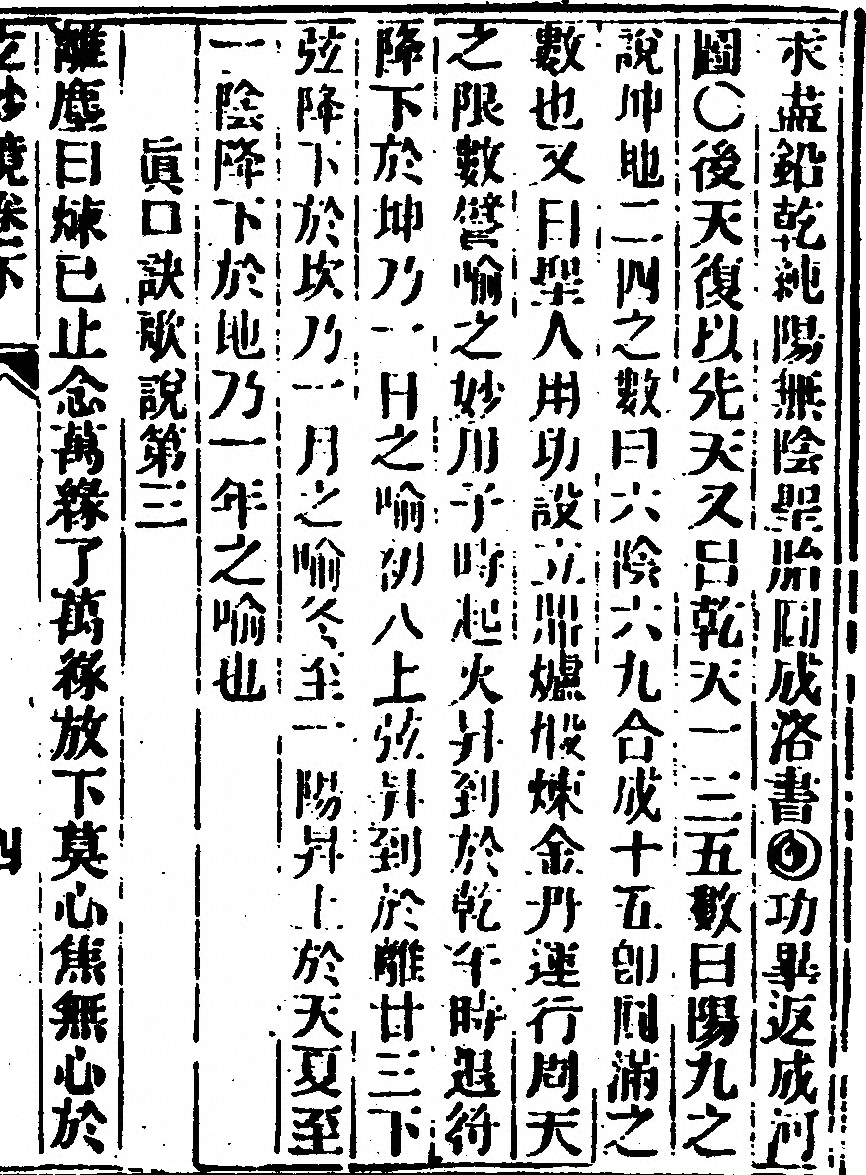 求盡鉛乾純陽無陰聖胎圓成洛書功畢返成河
圖〇後天復以先天又曰乾天一三五數曰陽九之
說坤地二四之數曰六陰六九合成十五卽圓滿之
數也又曰聖人用功設立鼎爐煅煉金丹運行周天
之限數譬喻之妙用子時起火昇到於乾午時退符
降下於坤乃一日之喻初八上弦昇到於離廿三下
弦降下於坎乃一月之喻冬至一陽昇上於天夏至
一陰降下於地乃一年之喻也
眞口訣歌說第三
離塵曰煉已止念萬緣了萬緣放下莫心焦無心於
玄妙鏡卷下
四